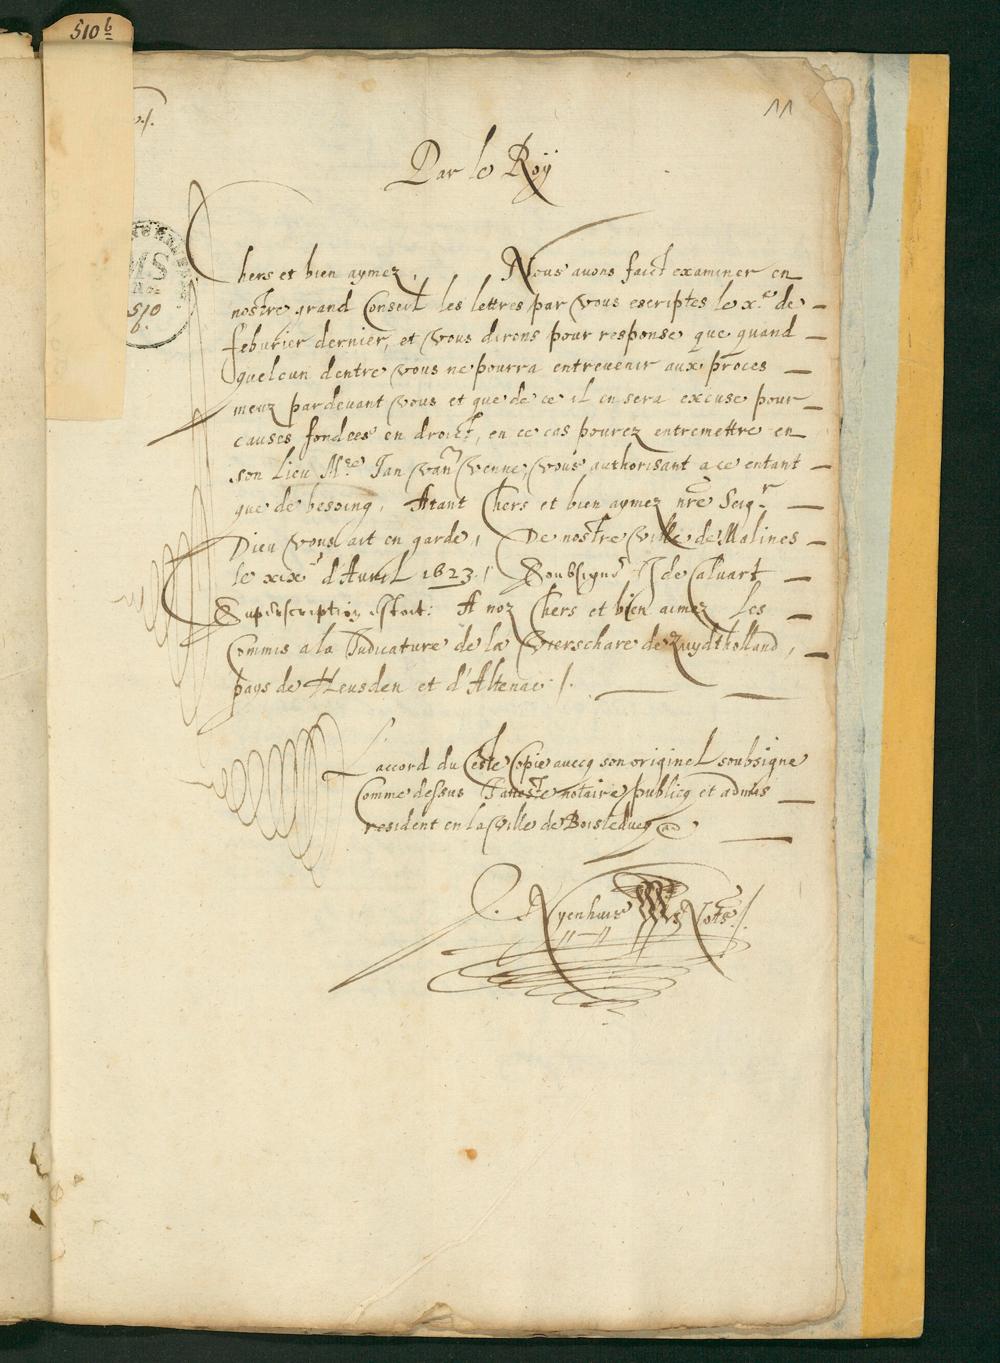 510 b
11
Par le Roÿ
MS
510
b.
Chers et bien aymez, Nous avons faict examiner en
nostre grand Conseil les lettres par vous escriptes le x.e de
febvrier dernier, et vous dirons pour response que quand
quelcun dentre vous ne pourra entrevenir aux proces
meuz pardevant vous et que de ce il en sera excuse pour
causes fondees en droict, en ce cas pourez entremettre en
son lieu M.re Jan van Venne, vous authorisant a ce entant
que de besoing, Atant Chers et bien aymez nre Seigr
Dieu vous ait en garde, De nostre ville de Malines
le xix.e d'Avril 1623 / Soubsigne J de Caluart
Superscription estoit: A noz Chers et bien aimez les
Commis a la Judicature de la Vierschare de Zuydtholland,
pays de Heusden et d'Altenac /.
L'accord du Ceste Copie avecq son originel soubsigne
Comme dessus J'atteste notaire publicq et admis
resident en la ville de Boisleducq
Nyenhuis Nots /